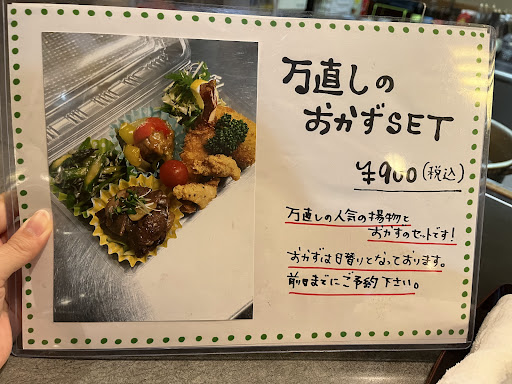 万直しの
おかずSET
¥900(税込)
万直しの人気の揚物と
おかずのセットです!
おかずは日替りとなっております。
前日までにご予約下さい。